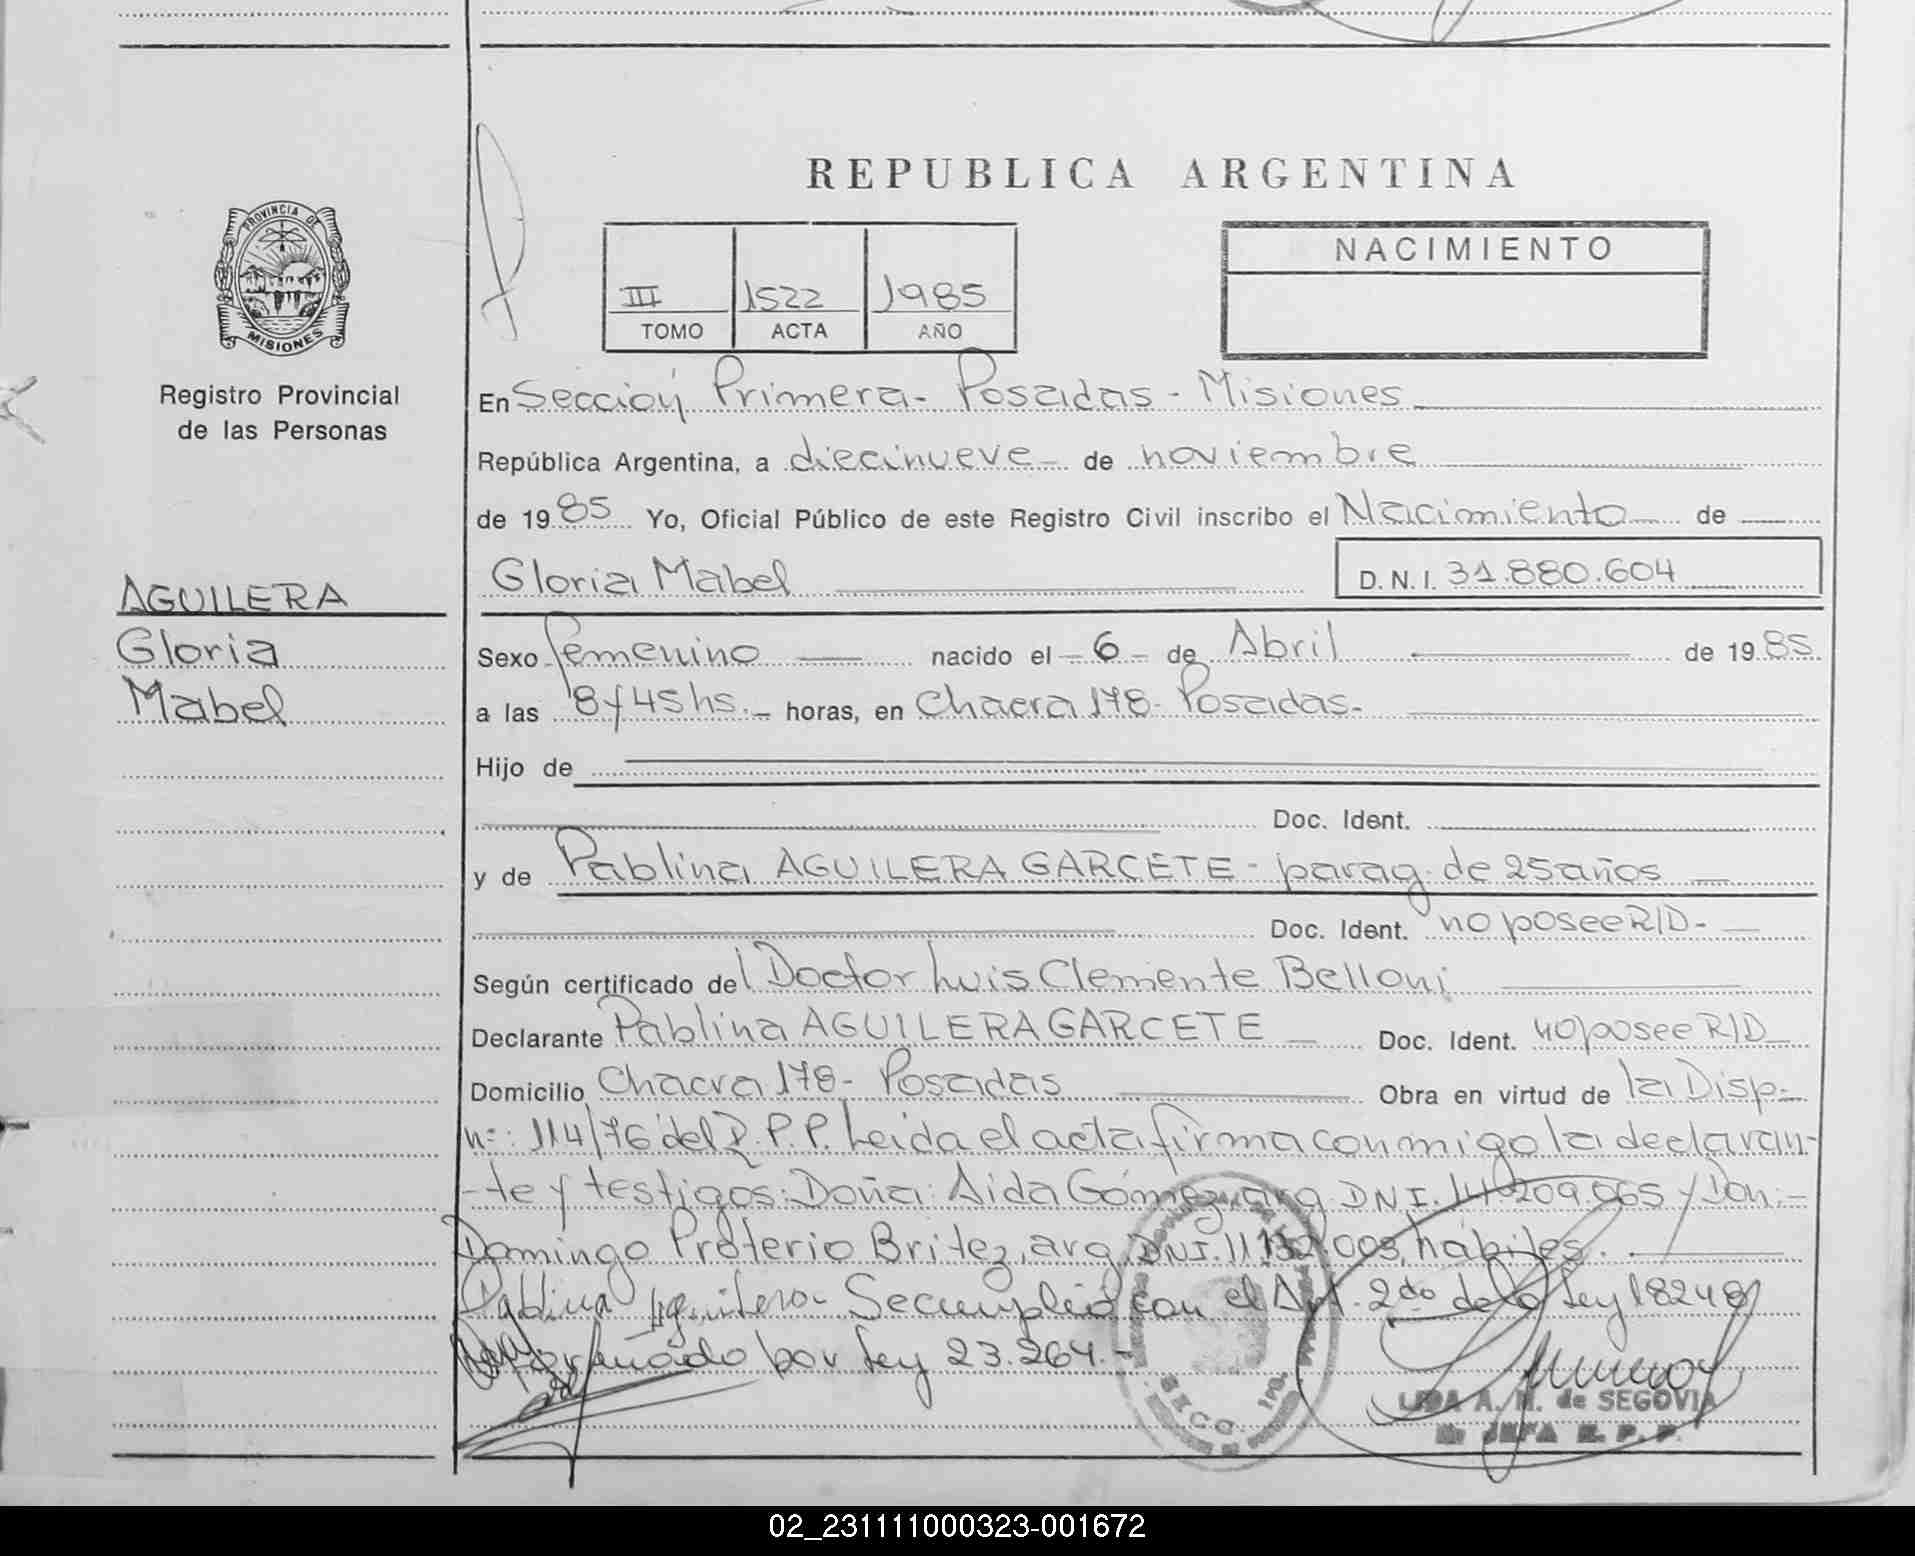 REPUBLICA ARGENTINA
PROVINCIA DE
MISIONES
Registro Provincial
de las Personas
III 1522 1985
TOMO ACTA AÑO
NACIMIENTO
En Sección Primera - Posadas - Misiones
República Argentina, a diecinueve de noviembre
de 1985 Yo, Oficial Público de este Registro Civil inscribo el Nacimiento de
Gloria Mabel D.N.I. 31.880.604
AGUILERA
Gloria
Mabel
Sexo femenino nacido el 6 de Abril de 1985
a las 8 y 45 hs. horas, en Chacra 178 - Posadas -
Hijo de
Doc. Ident.
y de Pablina AGUILERA GARCETE - parag. de 25 años
Doc. Ident. no posee R/D -
Según certificado del Doctor Luis Clemente Belloni
Declarante Pablina AGUILERA GARCETE Doc. Ident. no posee R/D
Domicilio Chacra 178 - Posadas Obra en virtud de la Disp.
n=: 114/76 del R.P.P. Leida el acta firma conmigo la declaran-
-te y testigos: Doña: Aida Gómez, arg. DNI. 14.209.065 y Don:
Domingo Proterio Britez, arg. DNI. 11.132.003, hábiles.
Pablina Aguilera Se cumplió con el Art. 2do de la Ley 18248
Reformado por Ley 23.264.-
SECC. 1ra.
LIDA A. M. de SEGOVIA
JEFA R. P. P.
02_231111000323-001672